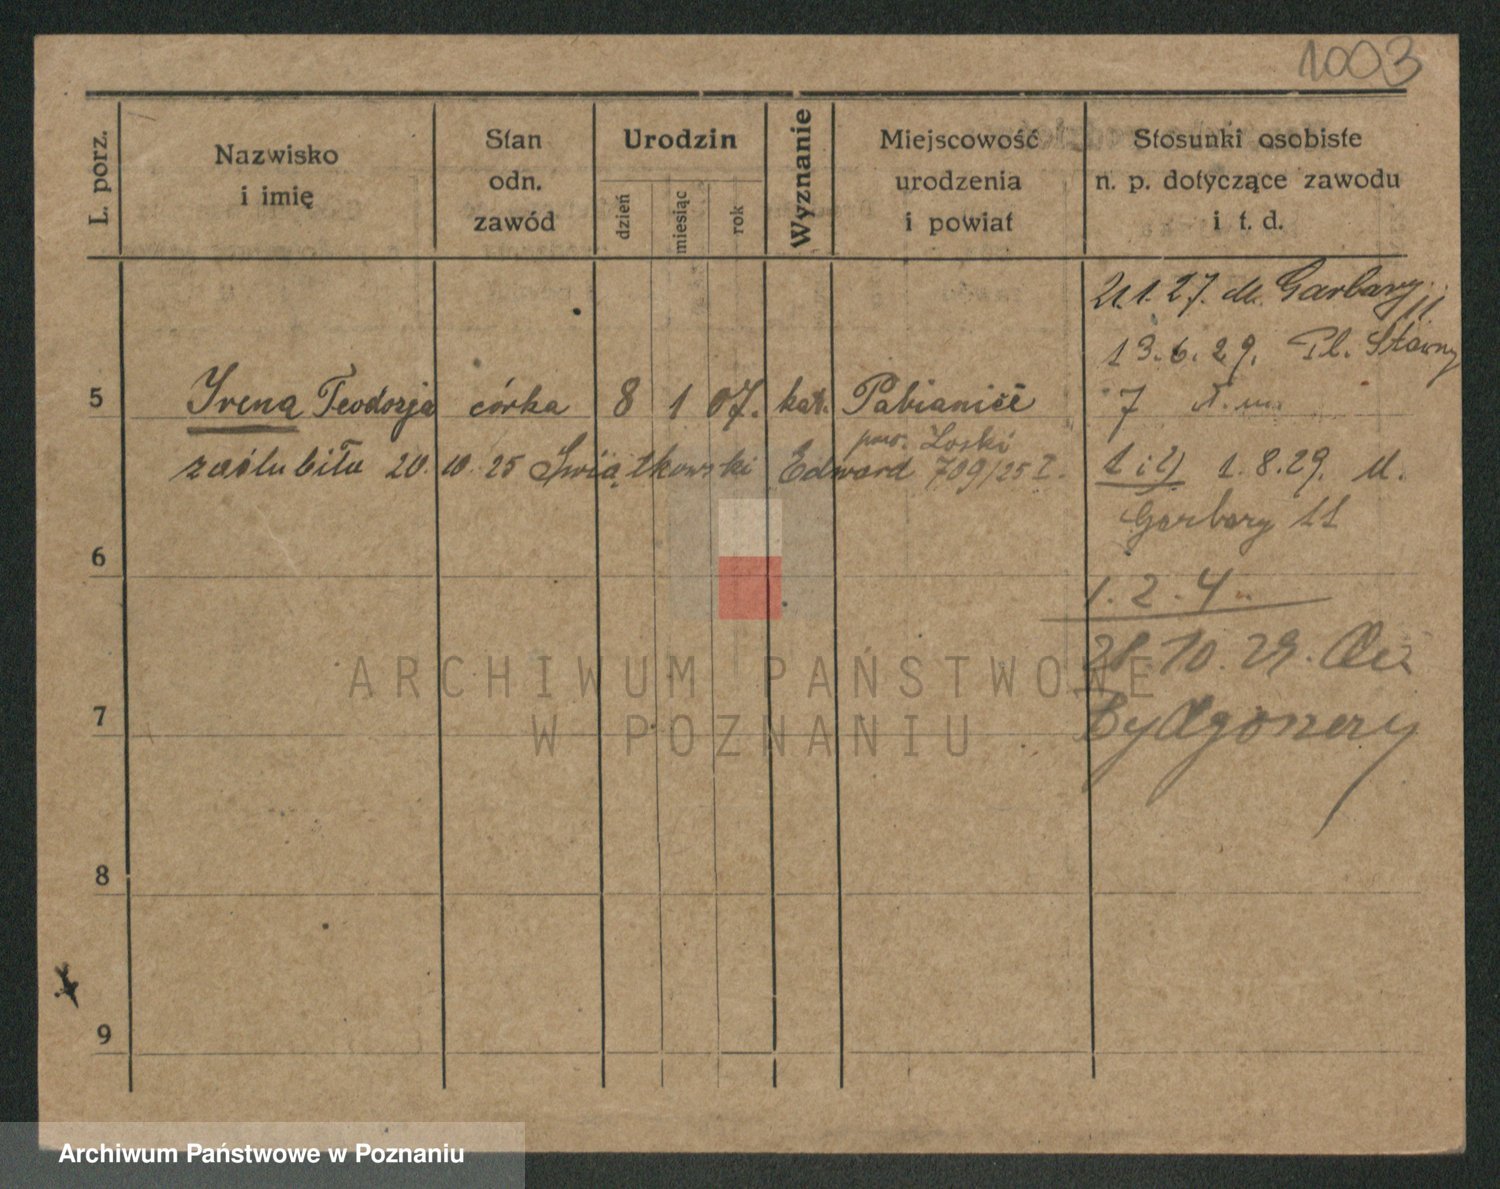 1003
L. porz.
Nazwisko
i imię
Stan
odn.
zawód
Urodzin
dzień
miesiąc
rok
Wyznanie
Miejscowość
urodzenia
i powiat
Stosunki osobiste
n. p. dotyczące zawodu
i t. d.
21.1.27. M. Garbary 11
13.6.29. Pl. Sławny
5 Irena Teodozja córka 8 1 07. kat. Pabianice 7
pow. Łaski
zaślubiła 20. 10. 25 Świątkowski Edward 709/25 I.
1 i 2) 1.8.29. M.
Garbary 11
6
1. 2. 4.
10.29.
Bydgoszczy
7
8
9
ARCHIWUM PAŃSTWOWE
W POZNANIU
Archiwum Państwowe w Poznaniu